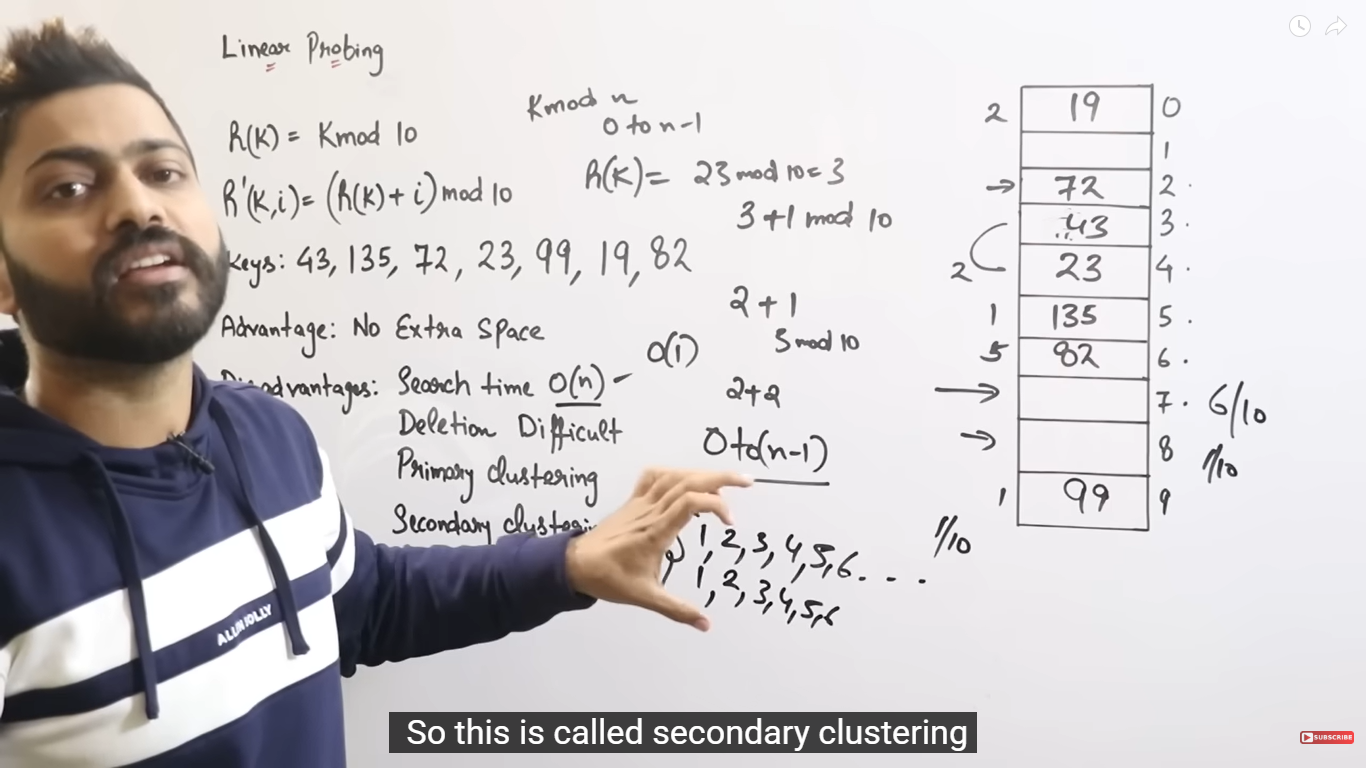 Linear Probing
h(K) = Kmod 10
h'(K,i) = (h(K) + i) mod 10
Keys: 43, 135, 72, 23, 99, 19, 82
Advantage: No Extra Space
Search time O(n) - O(1)
Deletion Difficult
Primary clustering
Secondary
Kmod n
0 to n-1
h(K) = 23 mod 10 = 3
3+1 mod 10
2+1
3 mod 10
2+2
0 to (n-1)
1, 2, 3, 4, 5, 6 . . .
1, 2, 3, 4, 5, 6
1/10
2 19 0
1
→ 72 2 .
43 3 .
2 23 4 .
1 135 5 .
5 82 6 .
→ 7 . 6/10
→ 8 1/10
1 99 9
ALLEN JOLLY
So this is called secondary clustering
SUBSCRIBE